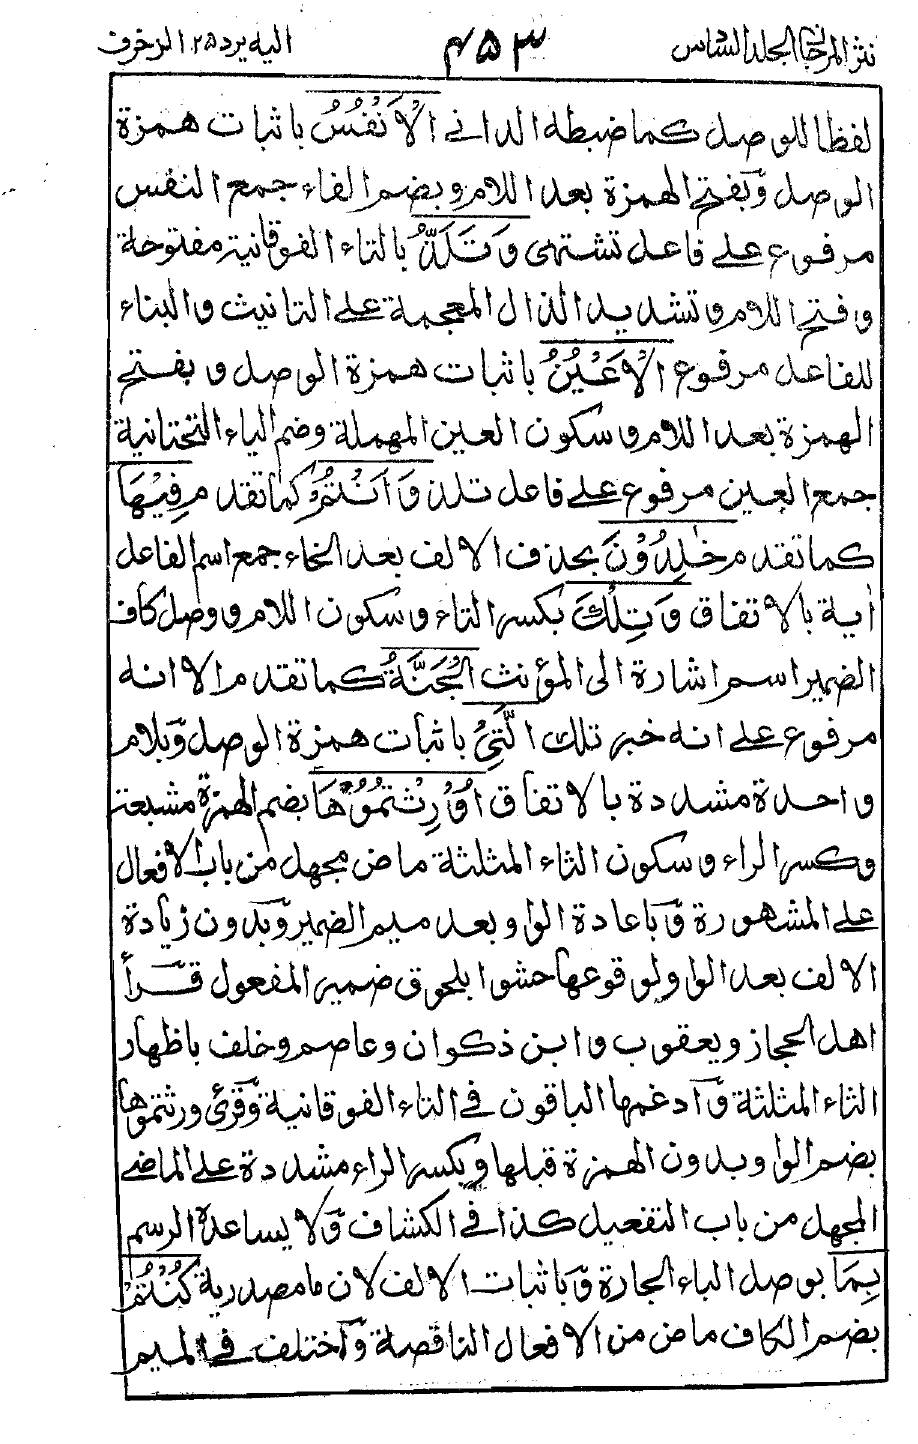 نثر المرجان الجلد السادس
۴۵۳
اليه يرد ۲۵ الزخرف
لفظا للوصل كما ضبطه الدانى الْاَنْفُسُ باثبات همزة
الوصل وبفتح الهمزة بعد اللام وبضم الفاء جمع النفس
مرفوع على فاعل تشتهى وَتَلَذُّ بالتاء الفوقانية مفتوحة
وفتح اللام وتشديد الذال المعجمة على التانيث والبناء
للفاعل مرفوع الْاَعْيُنُ باثبات همزة الوصل وبفتح
الهمزة بعد اللام وسكون العين المهملة وضم الياء التحتانية
جمع العين مرفوع على فاعل تلذ وَاَنْتُمْ كما تقدم فِيْهَا
كما تقدم خٰلِدُوْنَ بحذف الالف بعد الخاء جمع اسم الفاعل
اية بالاتفاق وَتِلْكَ بكسر التاء وسكون اللام ووصل كاف
الضمير اسم اشارة الى المؤنث الْجَنَّةُ كما تقدم الا انه
مرفوع على انه خبر تلك الَّتِىْ باثبات همزة الوصل وبلام
واحدة مشددة بالاتفاق اُوْرِثْتُمُوْهَا بضم الهمزة مشبعة
وكسر الراء وسكون الثاء المثلثة ماض مجهل من باب الافعال
على المشهورة وباعادة الواو بعد ميم الضمير وبدون زيادة
الالف بعد الواو لوقوعها حشوا بلحوق ضمير المفعول قرأ
اهل الحجاز ويعقوب وابن ذكوان وعاصم وخلف باظهار
الثاء المثلثة وادغمها الباقون فى التاء الفوقانية وقرئ ورثتموها
بضم الواو بدون الهمزة قبلها وبكسر الراء مشددة على الماضى
المجهل من باب التفعيل كذا فى الكشاف ولا يساعده الرسم
بِمَا بوصل الباء الجارة وباثبات الالف لان ما مصدرية كُنْتُمْ
بضم الكاف ماض من الافعال الناقصة واختلف فى الميم